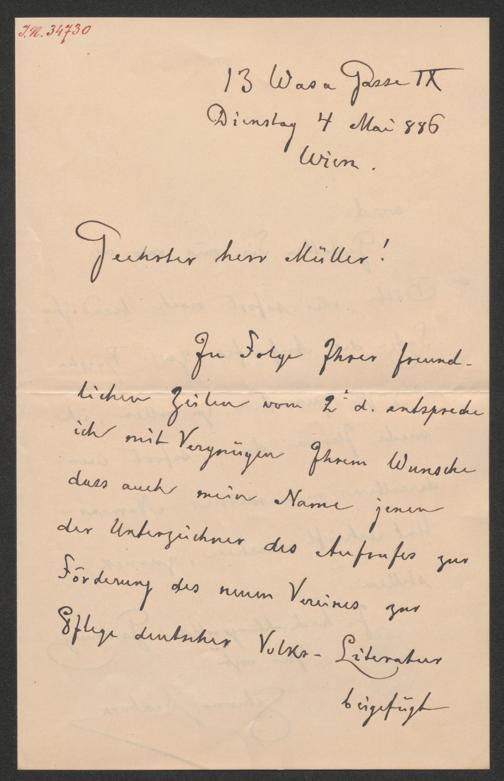 I.N. 34730
13 Wasa Gasse IX
Dienstag 4 Mai 886
Wien.
Geehrter Herr Müller!
Zu Folge Ihrer freund-
lichen Zeilen vom 2t d. entspreche
ich mit Vergnügen Ihrem Wunsche
dass auch mein Name jenen
der Unterzeichner des Aufrufes zur
Förderung des neuen Vereines zur
Pflege deutscher Volks-Literatur
beigefügt